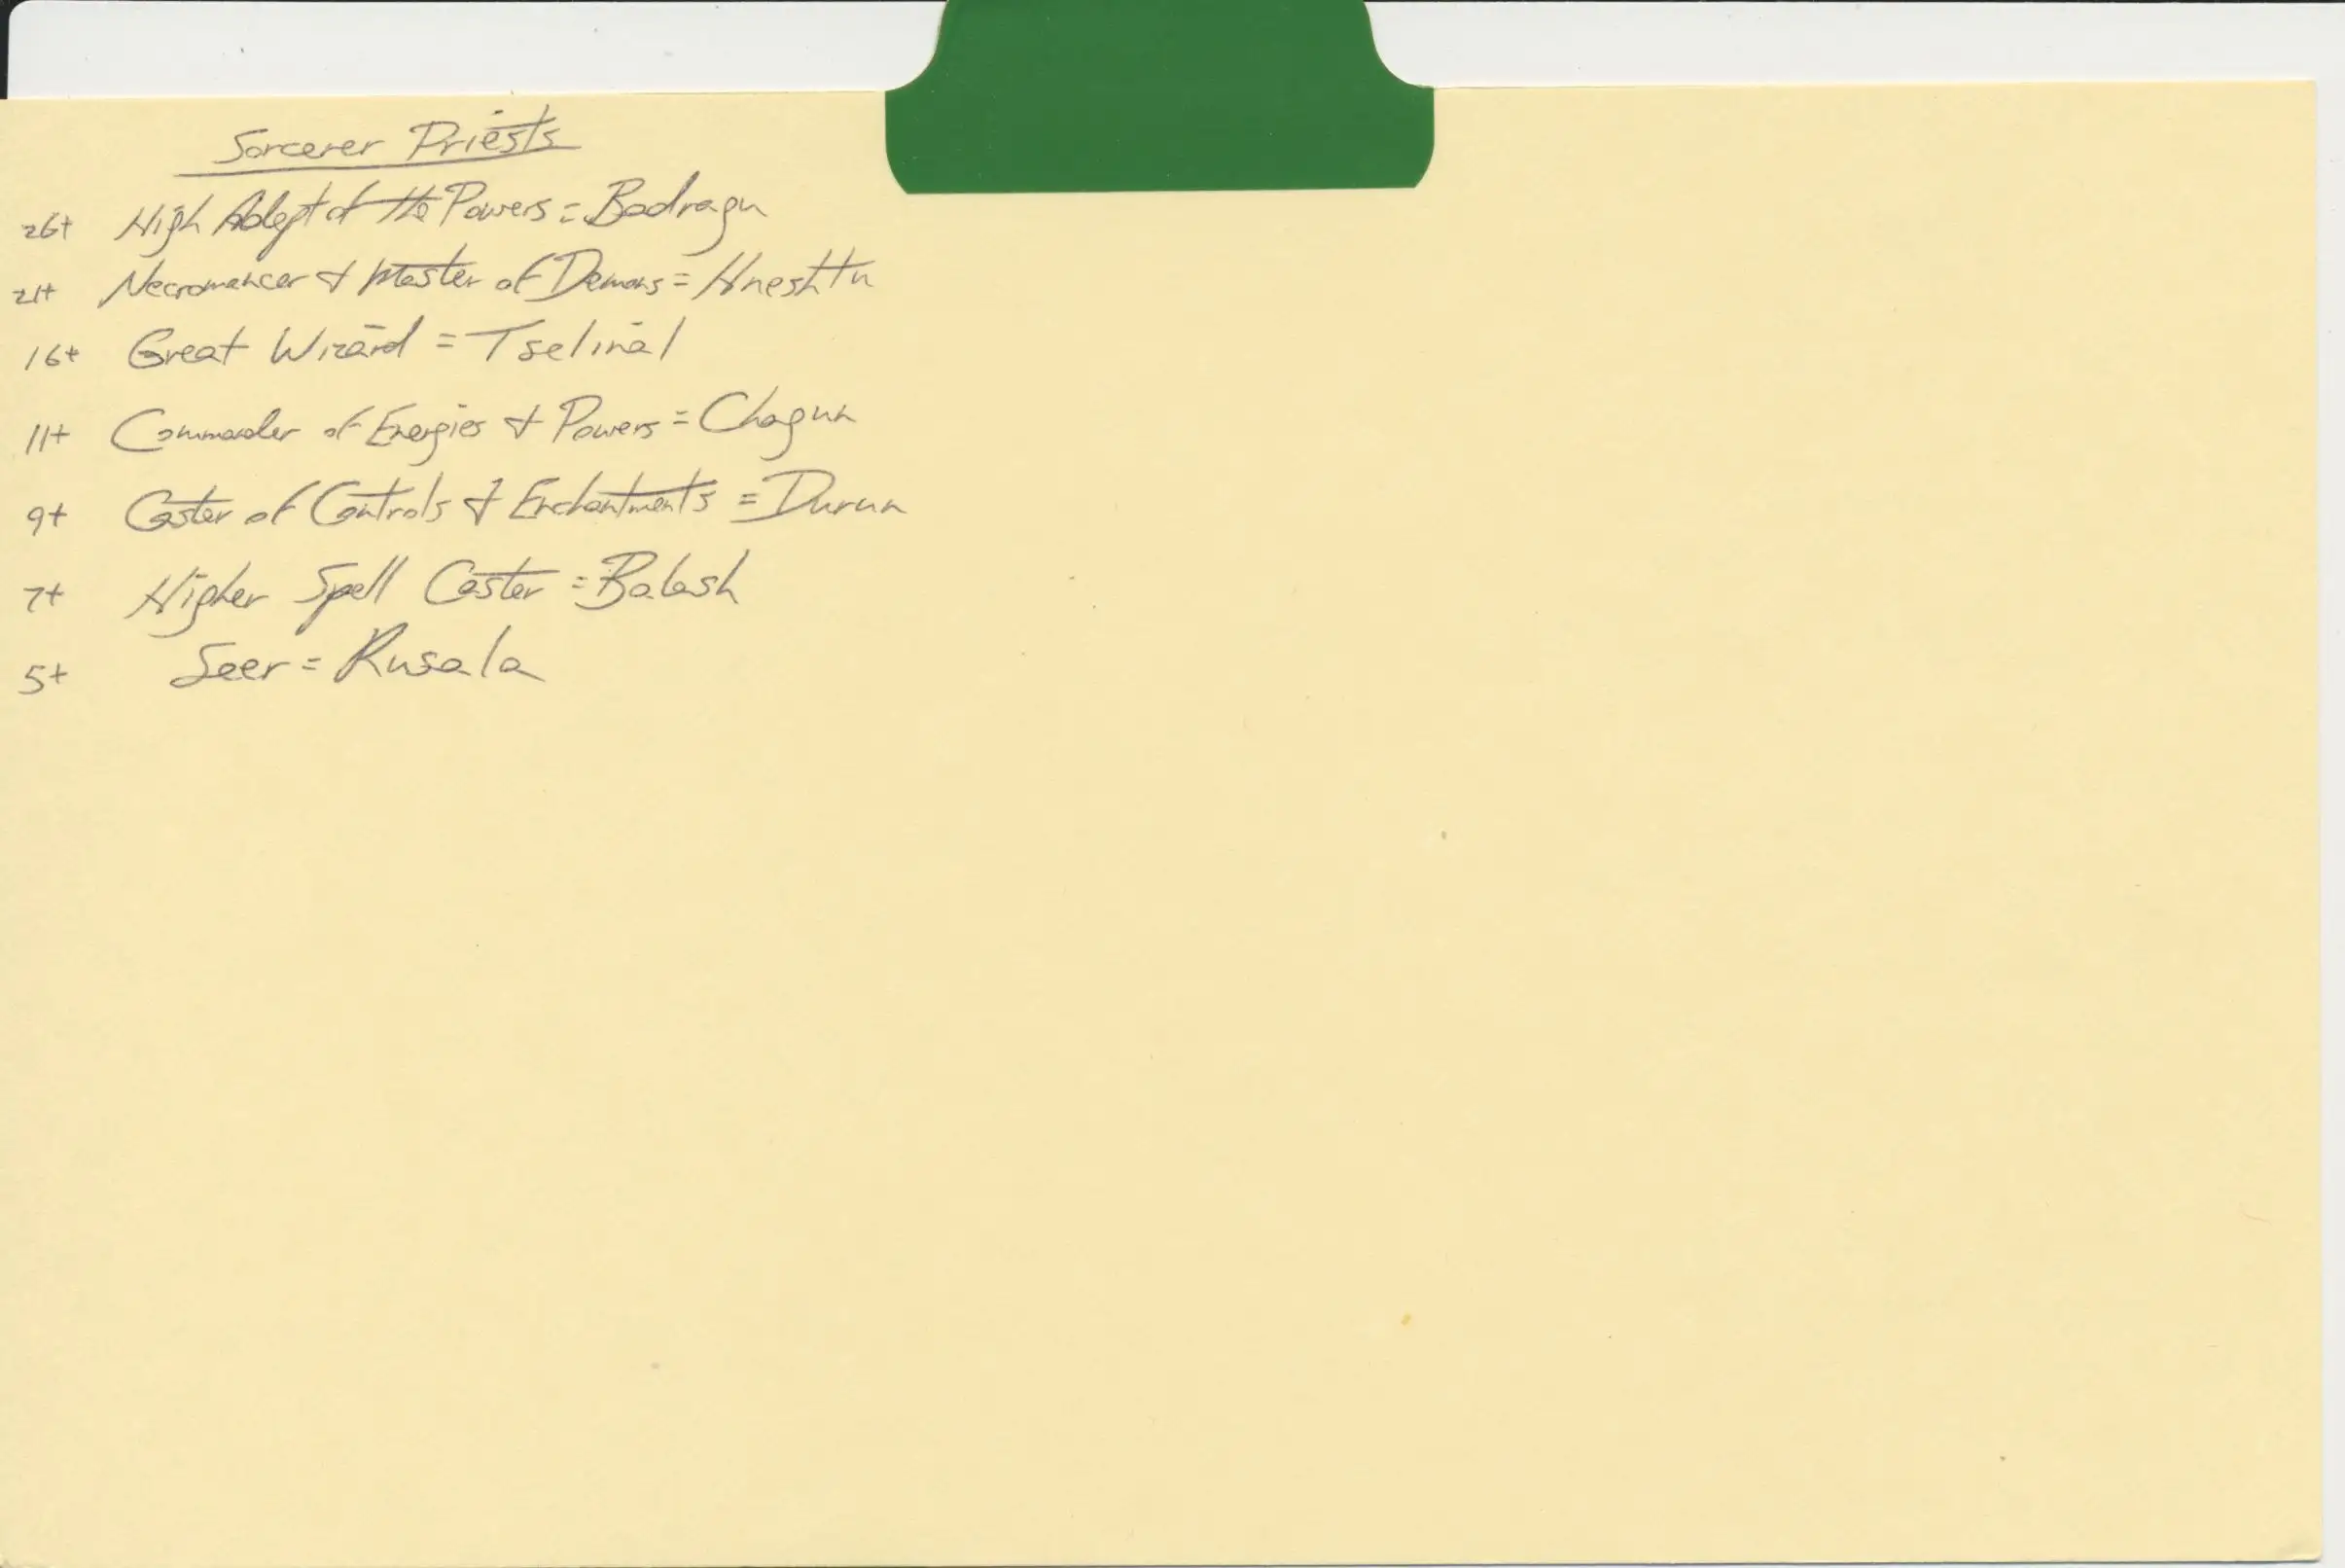 Sorcerer Priests
26+ High Adept of the Powers = Badragu
21+ Necromancer & Master of Demons = Hneshtu
16+ Great Wizard = Tselinal
11+ Commander of Energies & Powers = Chagun
9+ Caster of Controls & Enchantments = Durun
7+ Higher Spell Caster = Balash
5+ Seer = Rusala